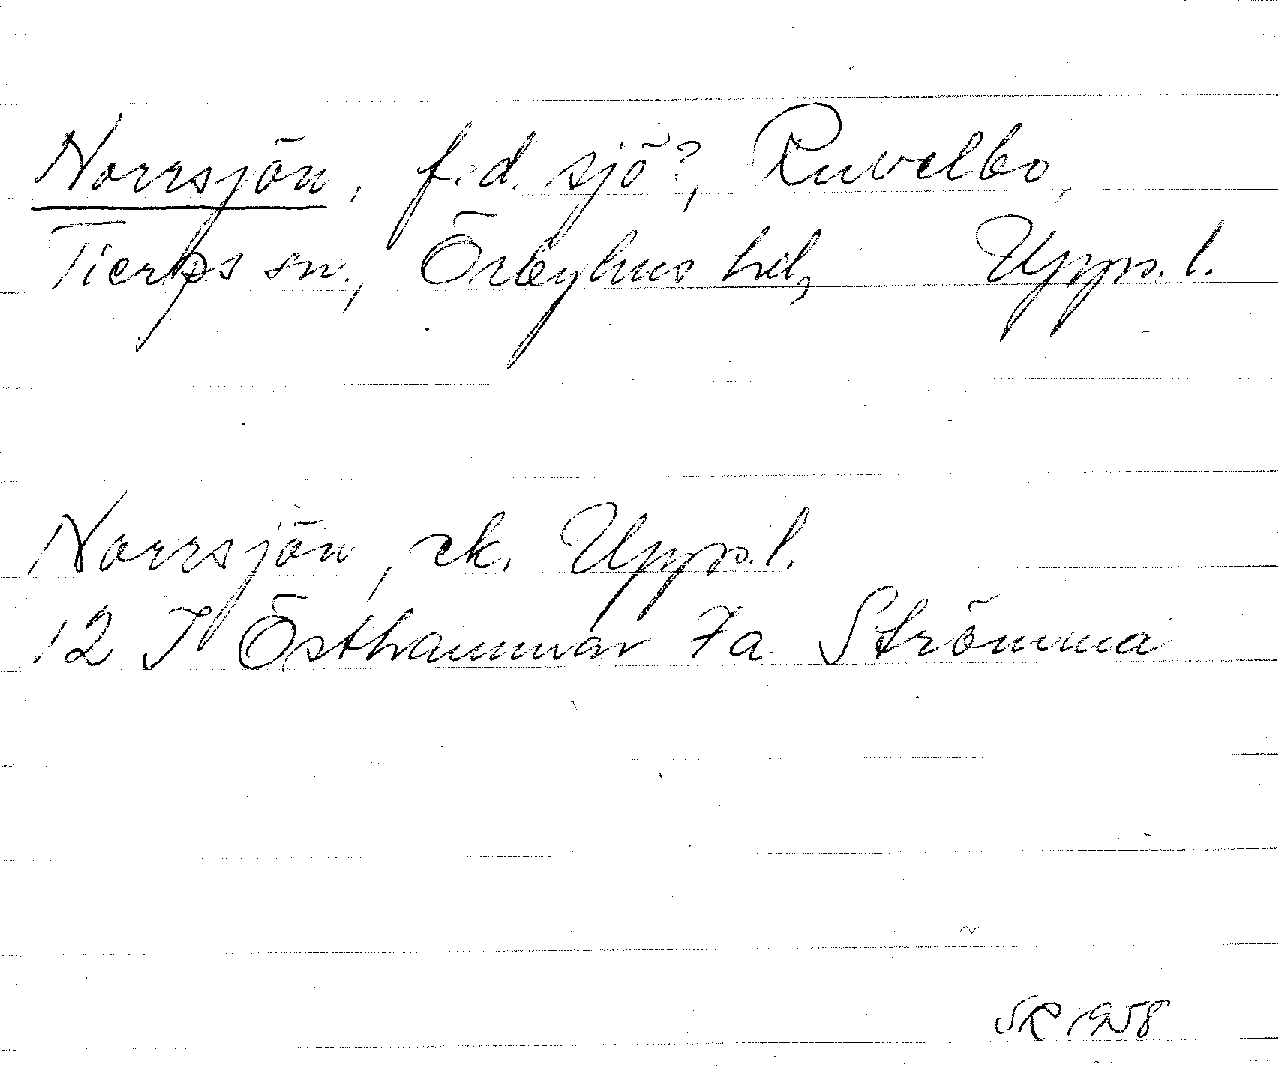 Norrsjön, f.d. sjö?, Ruvelbo,
Tierps sn., Örbyhus hd, Upps.l.
Norrsjön, ek. Upps.l.
12 I Östhammar 7a Strömma
SR 1958